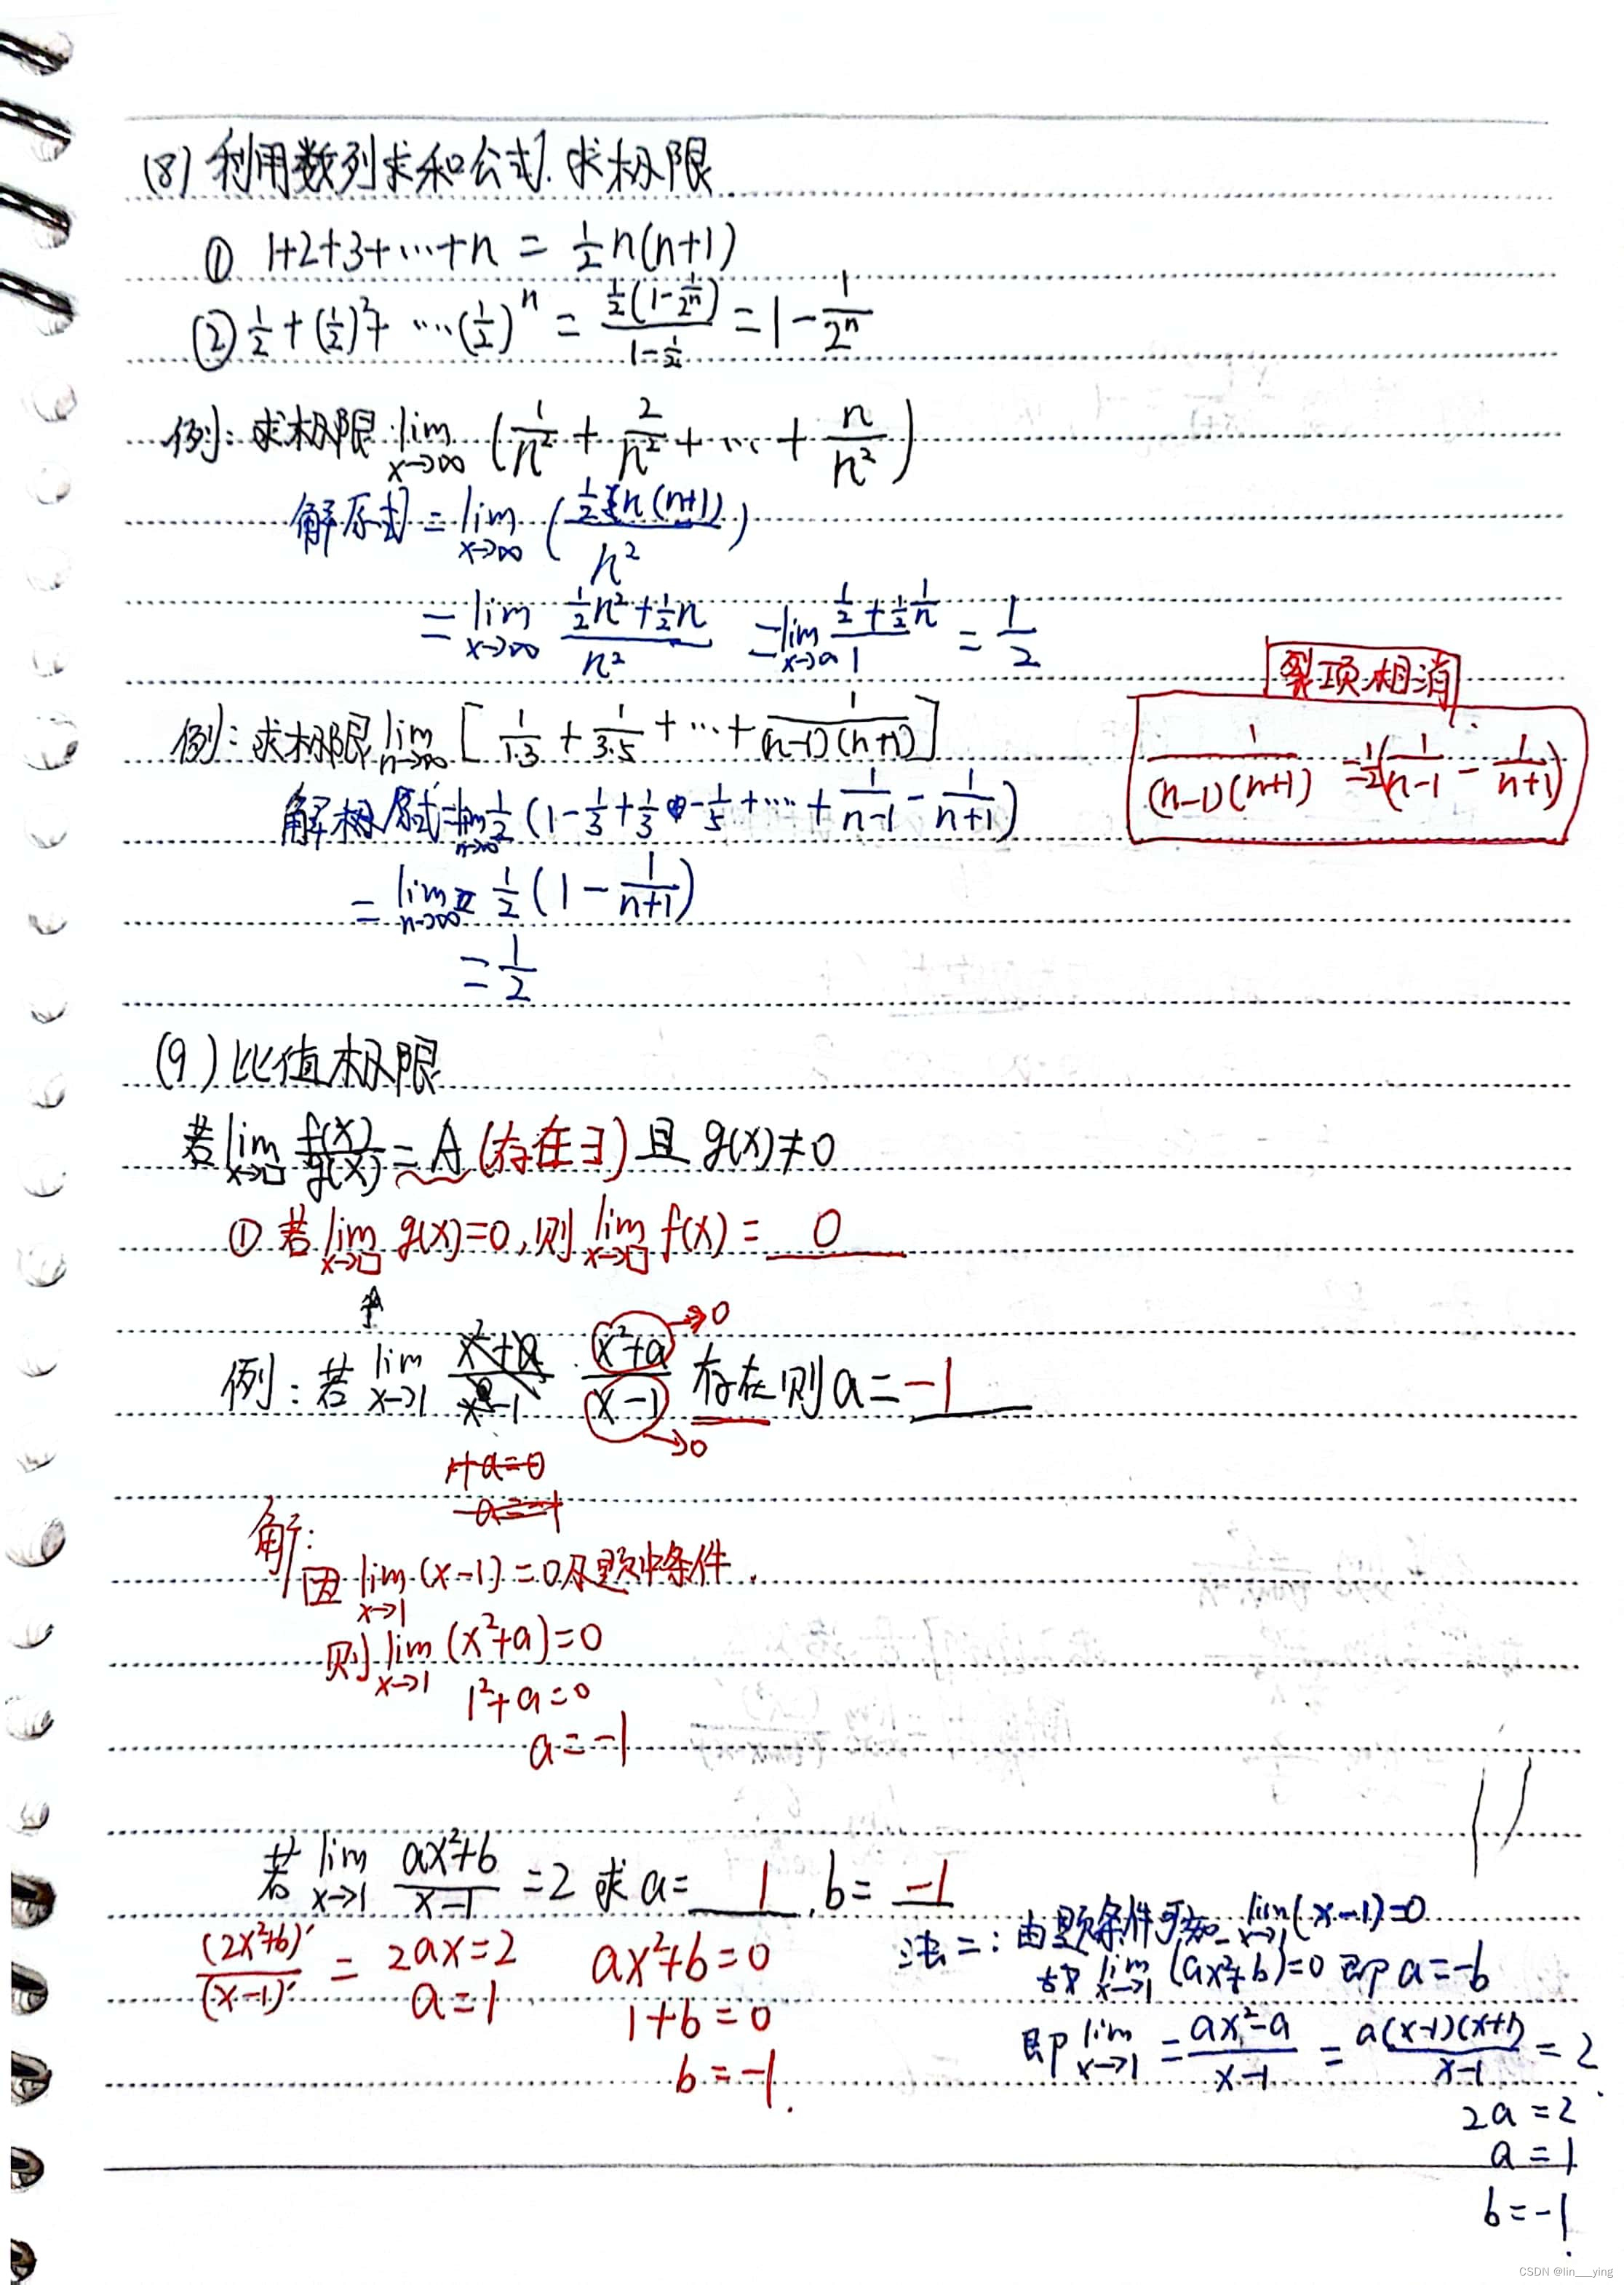 (8) 利用数列求和公式.求极限
① 1+2+3+…+n = 1/2 n(n+1)
② 1/2 + (1/2)² + …(1/2)^n = (1/2(1-1/2^n))/(1-1/2) = 1 - 1/2^n
例: 求极限 lim x→∞ (1/n² + 2/n² + … + n/n²)
解原式 = lim x→∞ (1/2 n(n+1) / n²)
= lim x→∞ (1/2 n² + 1/2 n)/n² = lim x→∞ (1/2 + 1/2 1/n)/1 = 1/2
裂项相消
1/((n-1)(n+1)) = 1/2(1/(n-1) - 1/(n+1))
例: 求极限 lim n→∞ [1/1·3 + 1/3·5 + … + 1/((n-1)(n+1))]
解 原式 = lim n→∞ 1/2 (1 - 1/3 + 1/3 - 1/5 + … + 1/(n-1) - 1/(n+1))
= lim n→∞ 1/2 (1 - 1/(n+1))
= 1/2
(9) 比值极限
若 lim x→□ f(x)/g(x) = A (存在∃) 且 g(x)≠0
① 若 lim x→□ g(x)=0, 则 lim x→□ f(x) = 0
例: 若 lim x→1 (x²+a)/(x-1) 存在则 a = -1
→0
→0
1+a=0
a=-1
解:
因 lim x→1 (x-1) = 0及题中条件.
则 lim x→1 (x²+a)=0
1²+a=0
a=-1
若 lim x→1 (ax²+b)/(x-1) = 2 求 a= 1 , b= -1
(2x²+b)′/(x-1)′ = 2ax=2
a=1
ax²+b=0
1+b=0
b=-1.
法二: 由题条件可知 lim x→1 (x-1)=0
故 lim x→1 (ax²+b)=0 即 a=-b
即 lim x→1 = (ax²-a)/(x-1) = a(x-1)(x+1)/(x-1) = 2.
2a=2
a=1
b=-1.
CSDN @lin___ying